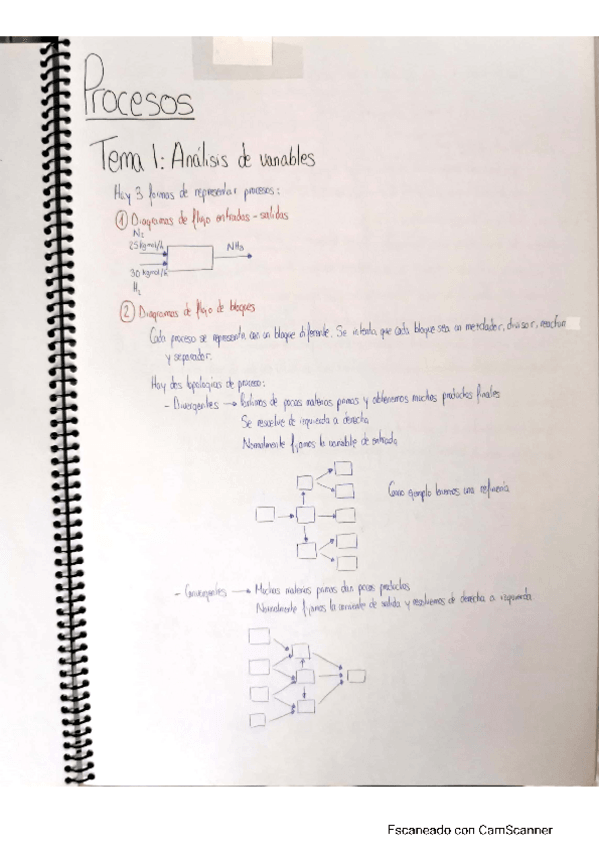 Procesos
Tema 1: Análisis de variables
Hay 3 formas de representar procesos:
① Diagramas de flujo entradas - salidas
N₂
25 kgmol/h
NH₃
30 kgmol/h
H₂
② Diagramas de flujo de bloques
Cada proceso se representa con un bloque diferente. Se intenta que cada bloque sea un mezclador, divisor, reactor
y separador.
Hay dos topologías de proceso:
- Divergentes → Partimos de pocas materias primas y obtenemos muchos productos finales
Se resuelve de izquierda a derecha
Normalmente fijamos la variable de entrada
Como ejemplo tenemos una refinería
- Convergentes → Muchas materias primas dan pocos productos
Normalmente fijamos la corriente de salida y resolvemos de derecha a izquierda
Escaneado con CamScanner